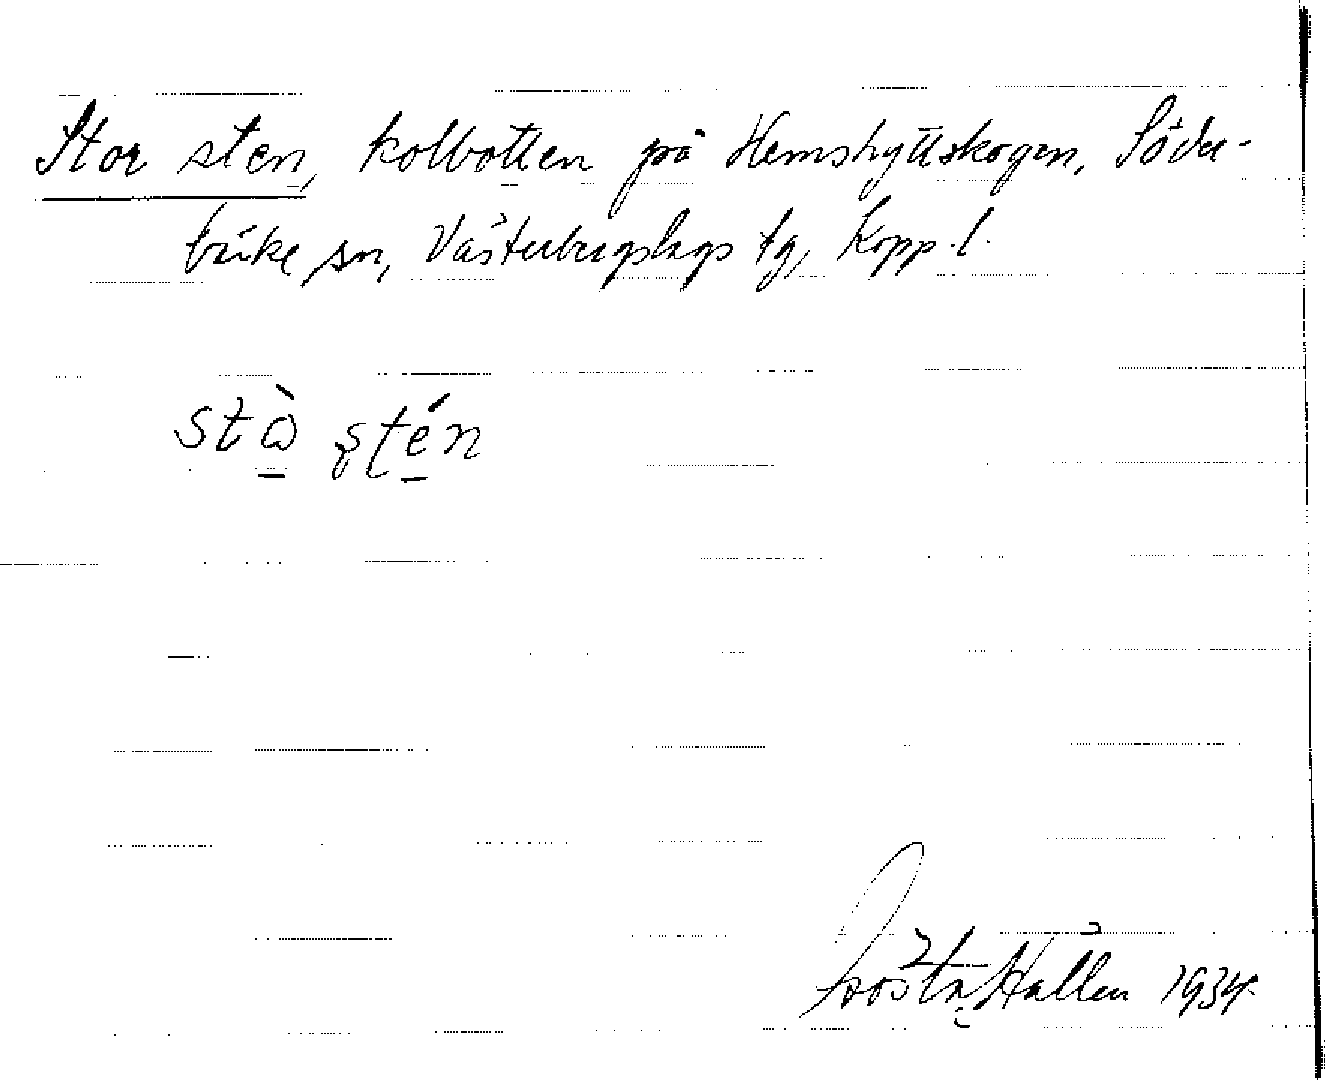 Stor sten, kolbotten på Hemshyttskogen, Söder-
bärke sn, Västerbergslags tg, Kopp. l.
stò̱ ʂʈé̱n
Gösta Hallén 1934.